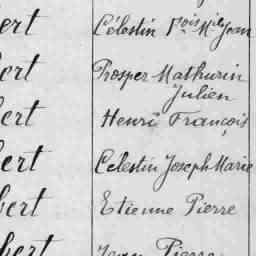 ert Célestin Fois Mie Jean
bert Prosper Mathurin
Julien
ert Henri François
bert Celestin Joseph Marie
bert Etienne Pierre
bert Jean Pierre